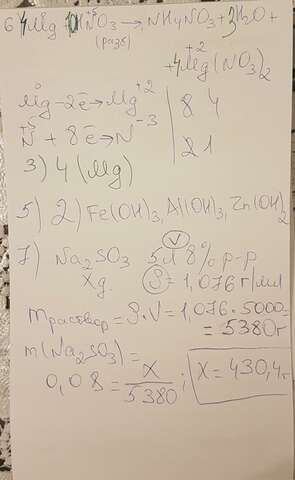 6 4Mg + 10HN⁺⁵O₃ → NH₄NO₃ + 3H₂O +
(разб)
+ 4Mg⁺²(NO₃)₂
Mg⁰ - 2ē → Mg⁺² | 8 4
N⁺⁵ + 8ē → N⁻³ | 2 1
3) 4 (Mg)
5) 2) Fe(OH)₃, Al(OH)₃, Zn(OH)₂
7) Na₂SO₃ 5л 8% р-р
V
Xg ρ = 1,076 г/мл
m раствор = ρ·V = 1,076·5000 =
= 5380г
m(Na₂SO₃) =
0,08 = X/5380 ; X = 430,4г